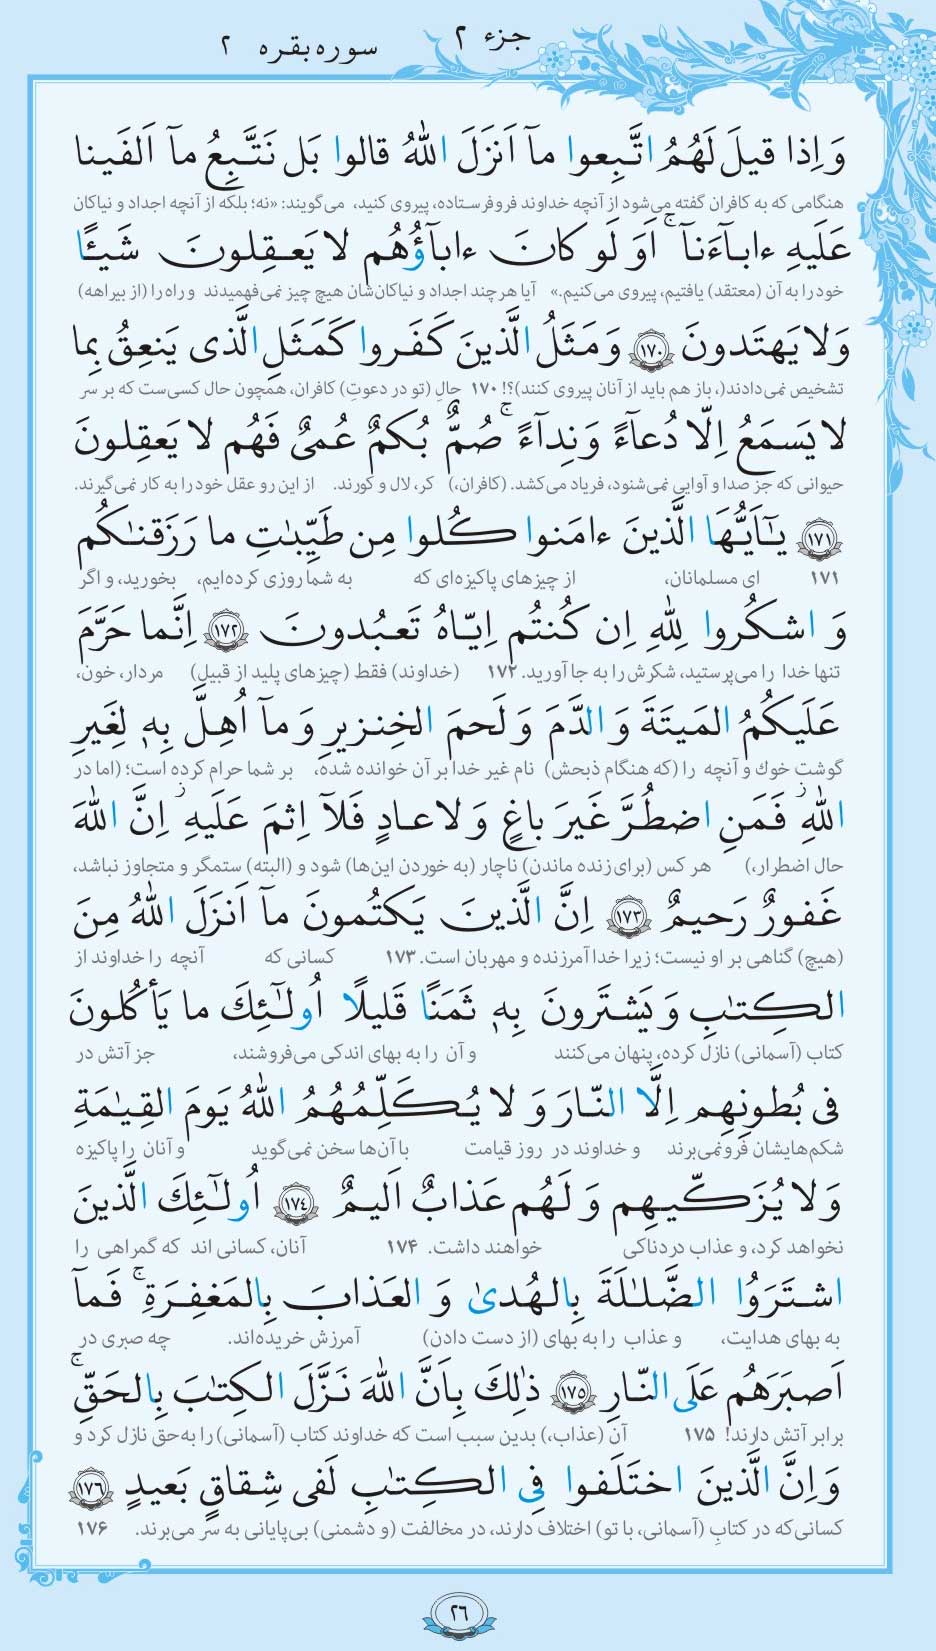 جزء ۲
سوره بقره ۲
وَاِذا قیلَ لَهُمُ اتَّبِعوا مآ اَنزَلَ اللّٰهُ قالوا بَل نَتَّبِعُ مآ اَلفَینا
هنگامی که به کافران گفته می‌شود از آنچه خداوند فروفرستاده، پیروی کنید، می‌گویند: «نه؛ بلکه از آنچه اجداد و نیاکان
عَلَیهِ ءابآءَنآ ۚ اَوَ لَو کانَ ءابآؤُهُم لا یَعقِلونَ شَیئًا
خود را به آن (معتقد) یافتیم، پیروی می‌کنیم.» آیا هرچند اجداد و نیاکان‌شان هیچ چیز نمی‌فهمیدند و راه را (از بیراهه)
وَلا یَهتَدونَ ﴿۱۷۰﴾ وَمَثَلُ الَّذینَ کَفَروا کَمَثَلِ الَّذی یَنعِقُ بِما
تشخیص نمی‌دادند(، باز هم باید از آنان پیروی کنند)؟! ۱۷۰ حالِ (تو در دعوتِ) کافران، همچون حال کسی‌ست که بر سر
لا یَسمَعُ اِلّا دُعآءً وَنِدآءً ۚ صُمٌّ بُکمٌ عُمیٌ فَهُم لا یَعقِلونَ
حیوانی که جز صدا و آوایی نمی‌شنود، فریاد می‌کشد. (کافران،) کر، لال و کورند. از این رو عقل خود را به کار نمی‌گیرند.
﴿۱۷۱﴾ یٰٓاَیُّهَا الَّذینَ ءامَنوا کُلوا مِن طَیِّبٰتِ ما رَزَقنٰکُم
۱۷۱ ای مسلمانان، از چیزهای پاکیزه‌ای که به شما روزی کرده‌ایم، بخورید، و اگر
وَ اشکُروا لِلّٰهِ اِن کُنتُم اِیّاهُ تَعبُدونَ ﴿۱۷۲﴾ اِنَّما حَرَّمَ
تنها خدا را می‌پرستید، شکرش را به جا آورید. ۱۷۲ (خداوند) فقط (چیزهای پلید از قبیل) مردار، خون،
عَلَیکُمُ المَیتَةَ وَ الدَّمَ وَ لَحمَ الخِنزیرِ وَ مآ اُهِلَّ بِهٖ لِغَیرِ
گوشت خوك و آنچه را (که هنگام ذبحش) نام غیر خدا بر آن خوانده شده، بر شما حرام کرده است؛ (اما در
اللّٰهِ ۖ فَمَنِ اضطُرَّ غَیرَ باغٍ وَ لا عادٍ فَلآ اِثمَ عَلَیهِ ۚ اِنَّ اللّٰهَ
حال اضطرار،) هر کس (برای زنده ماندن) ناچار (به خوردن این‌ها) شود و (البته) ستمگر و متجاوز نباشد،
غَفورٌ رَحیمٌ ﴿۱۷۳﴾ اِنَّ الَّذینَ یَکتُمونَ مآ اَنزَلَ اللّٰهُ مِنَ
(هیچ) گناهی بر او نیست؛ زیرا خدا آمرزنده و مهربان است. ۱۷۳ کسانی که آنچه را خداوند از
الکِتٰبِ وَ یَشتَرونَ بِهٖ ثَمَنًا قَلیلًا اُولٰٓئِكَ ما یَأکُلونَ
کتاب (آسمانی) نازل کرده، پنهان می‌کنند و آن را به بهای اندکی می‌فروشند، جز آتش در
فی بُطونِهِم اِلَّا النّارَ وَ لا یُکَلِّمُهُمُ اللّٰهُ یَومَ القِیٰمَةِ
شکم‌هایشان فرونمی‌برند و خداوند در روز قیامت با آن‌ها سخن نمی‌گوید و آنان را پاکیزه
وَلا یُزَکّیهِم وَ لَهُم عَذابٌ اَلیمٌ ﴿۱۷۴﴾ اُولٰٓئِكَ الَّذینَ
نخواهد کرد، و عذاب دردناکی خواهند داشت. ۱۷۴ آنان، کسانی اند که گمراهی را
اشتَرَوُا الضَّلٰلَةَ بِالهُدیٰ وَ العَذابَ بِالمَغفِرَةِ ۚ فَمآ
به بهای هدایت، و عذاب را به بهای (از دست دادن) آمرزش خریده‌اند. چه صبری در
اَصبَرَهُم عَلَی النّارِ ﴿۱۷۵﴾ ذٰلِكَ بِاَنَّ اللّٰهَ نَزَّلَ الکِتٰبَ بِالحَقِّ ۚ
برابر آتش دارند! ۱۷۵ آن (عذاب،) بدین سبب است که خداوند کتاب (آسمانی) را به‌حق نازل کرد و
وَ اِنَّ الَّذینَ اختَلَفوا فِی الکِتٰبِ لَفی شِقاقٍ بَعیدٍ ﴿۱۷۶﴾
کسانی‌که در کتابِ (آسمانی، با تو) اختلاف دارند، در مخالفت (و دشمنی) بی‌پایانی به سر می‌برند. ۱۷۶
۲۶